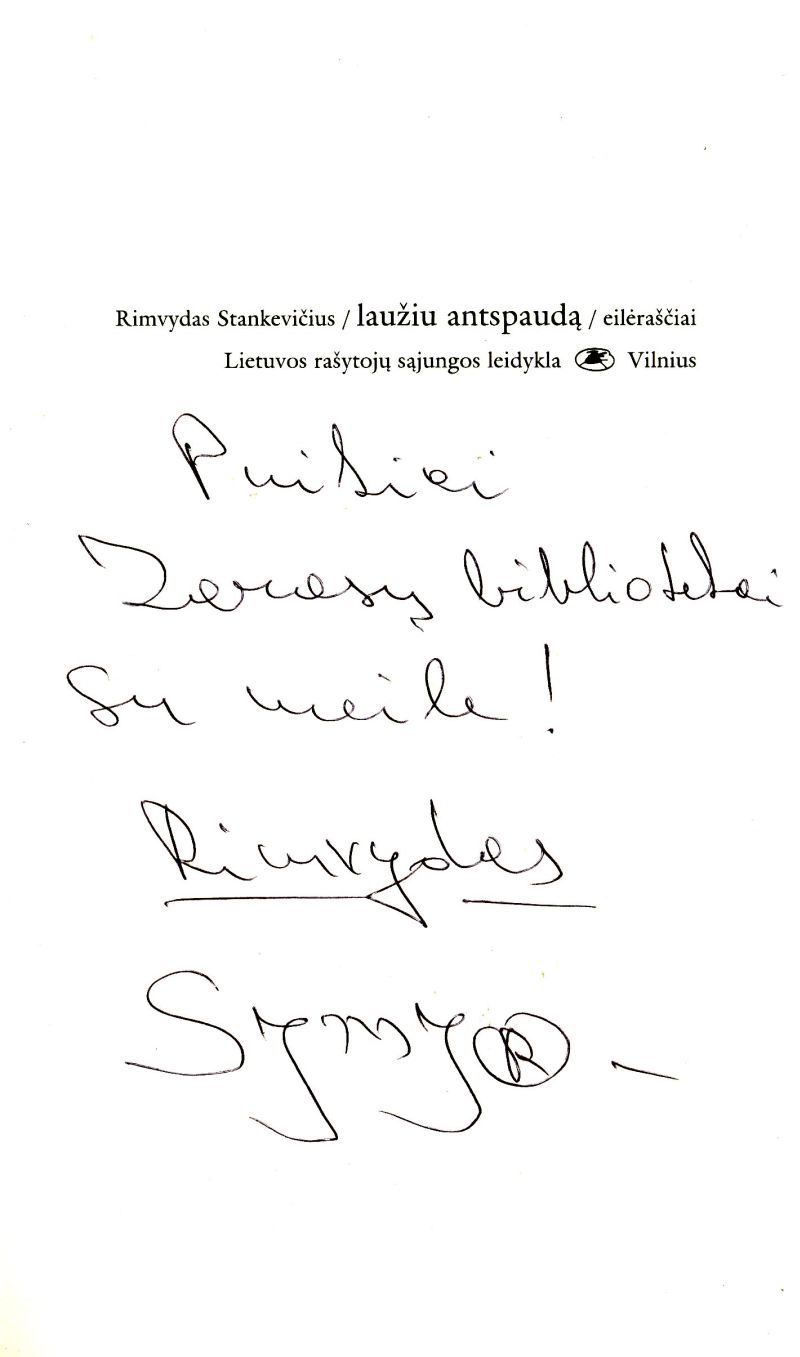 Rimvydas Stankevičius / laužiu antspaudą / eilėraščiai
Lietuvos rašytojų sąjungos leidykla Vilnius
Puikiai
Zarasų bibliotekai
su meile!
Rimvydas
R